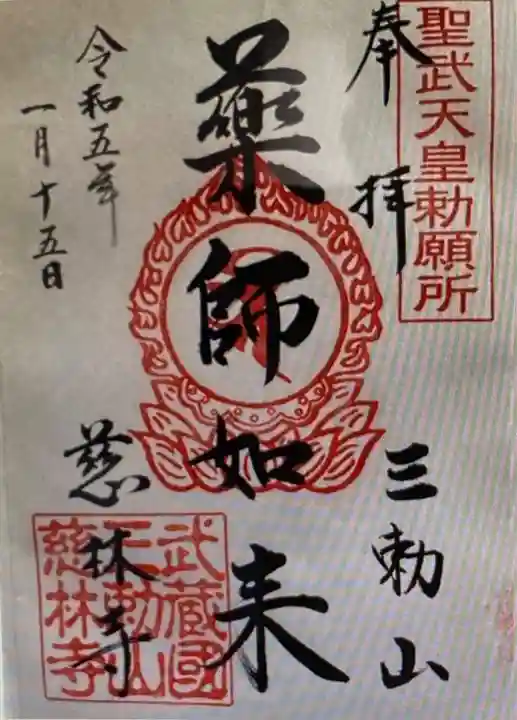 聖武天皇勅願所
奉拝
三勅山
薬師如来
令和五年
一月十五日
慈林寺
武蔵國
三勅山
慈林寺